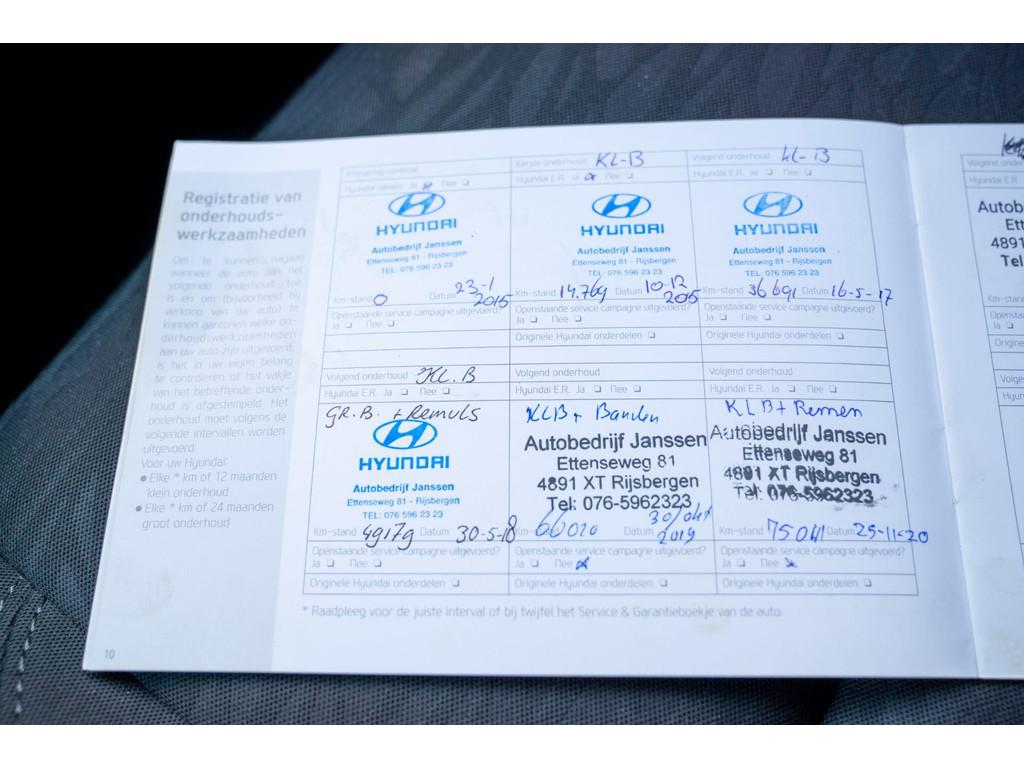 Registratie van
onderhouds-
werkzaamheden
Om te kunnen nagaan
wanneer de auto aan het
volgende onderhoud toe
is en om (bijvoorbeeld bij
verkoop van uw auto) te
kunnen aantonen welke on-
derhoudswerkzaamheden
aan uw auto zijn uitgevoerd,
is het in uw eigen belang
te controleren of het vakje
van het betreffende onder-
houd is afgestempeld. Het
onderhoud moet volgens de
volgende intervallen worden
uitgevoerd:
Voor uw Hyundai:
● Elke * km of 12 maanden
klein onderhoud
● Elke * km of 24 maanden
groot onderhoud
10
Aflevering controle
Hyundai-dealer: Ja Nee ❑
HYUNDAI
Autobedrijf Janssen
Ettenseweg 81 - Rijsbergen
TEL: 076 596 23 23
Km-stand 0 Datum 23-1
2015
Openstaande service campagne uitgevoerd?
Ja ❑ Nee ❑
Eerste onderhoud: KL-B
Hyundai E.R. Ja Nee ❑
HYUNDAI
Autobedrijf Janssen
Ettenseweg 81 - Rijsbergen
TEL: 076 596 23 23
Km-stand 14.769 Datum 10-12
2015
Openstaande service campagne uitgevoerd?
Ja ❑ Nee ❑
Originele Hyundai onderdelen ❑
Volgend onderhoud KL-B
Hyundai E.R. Ja ❑ Nee ❑
HYUNDAI
Autobedrijf Janssen
Ettenseweg 81 - Rijsbergen
TEL: 076 596 23 23
Km-stand 36691 Datum 16-5-17
Openstaande service campagne uitgevoerd?
Ja ❑ Nee ❑
Originele Hyundai onderdelen ❑
Volgend onderhoud KL.B
Hyundai E.R. Ja ❑ Nee ❑
GR.B. + Remuls
HYUNDAI
Autobedrijf Janssen
Ettenseweg 81 - Rijsbergen
TEL: 076 596 23 23
Km-stand 49179 Datum 30-5-18
Openstaande service campagne uitgevoerd?
Ja ❑ Nee ❑
Originele Hyundai onderdelen ❑
Volgend onderhoud
Hyundai E.R. Ja ❑ Nee ❑
KLB + Banden
Autobedrijf Janssen
Ettenseweg 81
4891 XT Rijsbergen
Tel: 076-5962323
Km-stand 60020 Datum 30/okt
2019
Openstaande service campagne uitgevoerd?
Ja ❑ Nee
Originele Hyundai onderdelen ❑
Volgend onderhoud
Hyundai E.R. Ja ❑ Nee ❑
KLB + Remen
Autobedrijf Janssen
Ettenseweg 81
4891 XT Rijsbergen
Tel: 076-5962323
Km-stand 75041 Datum 25-11-20
Openstaande service campagne uitgevoerd?
Ja ❑ Nee
Originele Hyundai onderdelen ❑
* Raadpleeg voor de juiste interval of bij twijfel het Service & Garantieboekje van de auto.
Volgend onder
Hyundai E.R.
Autob
4891
Te
Km-stand
Openstaa
Ja ❑